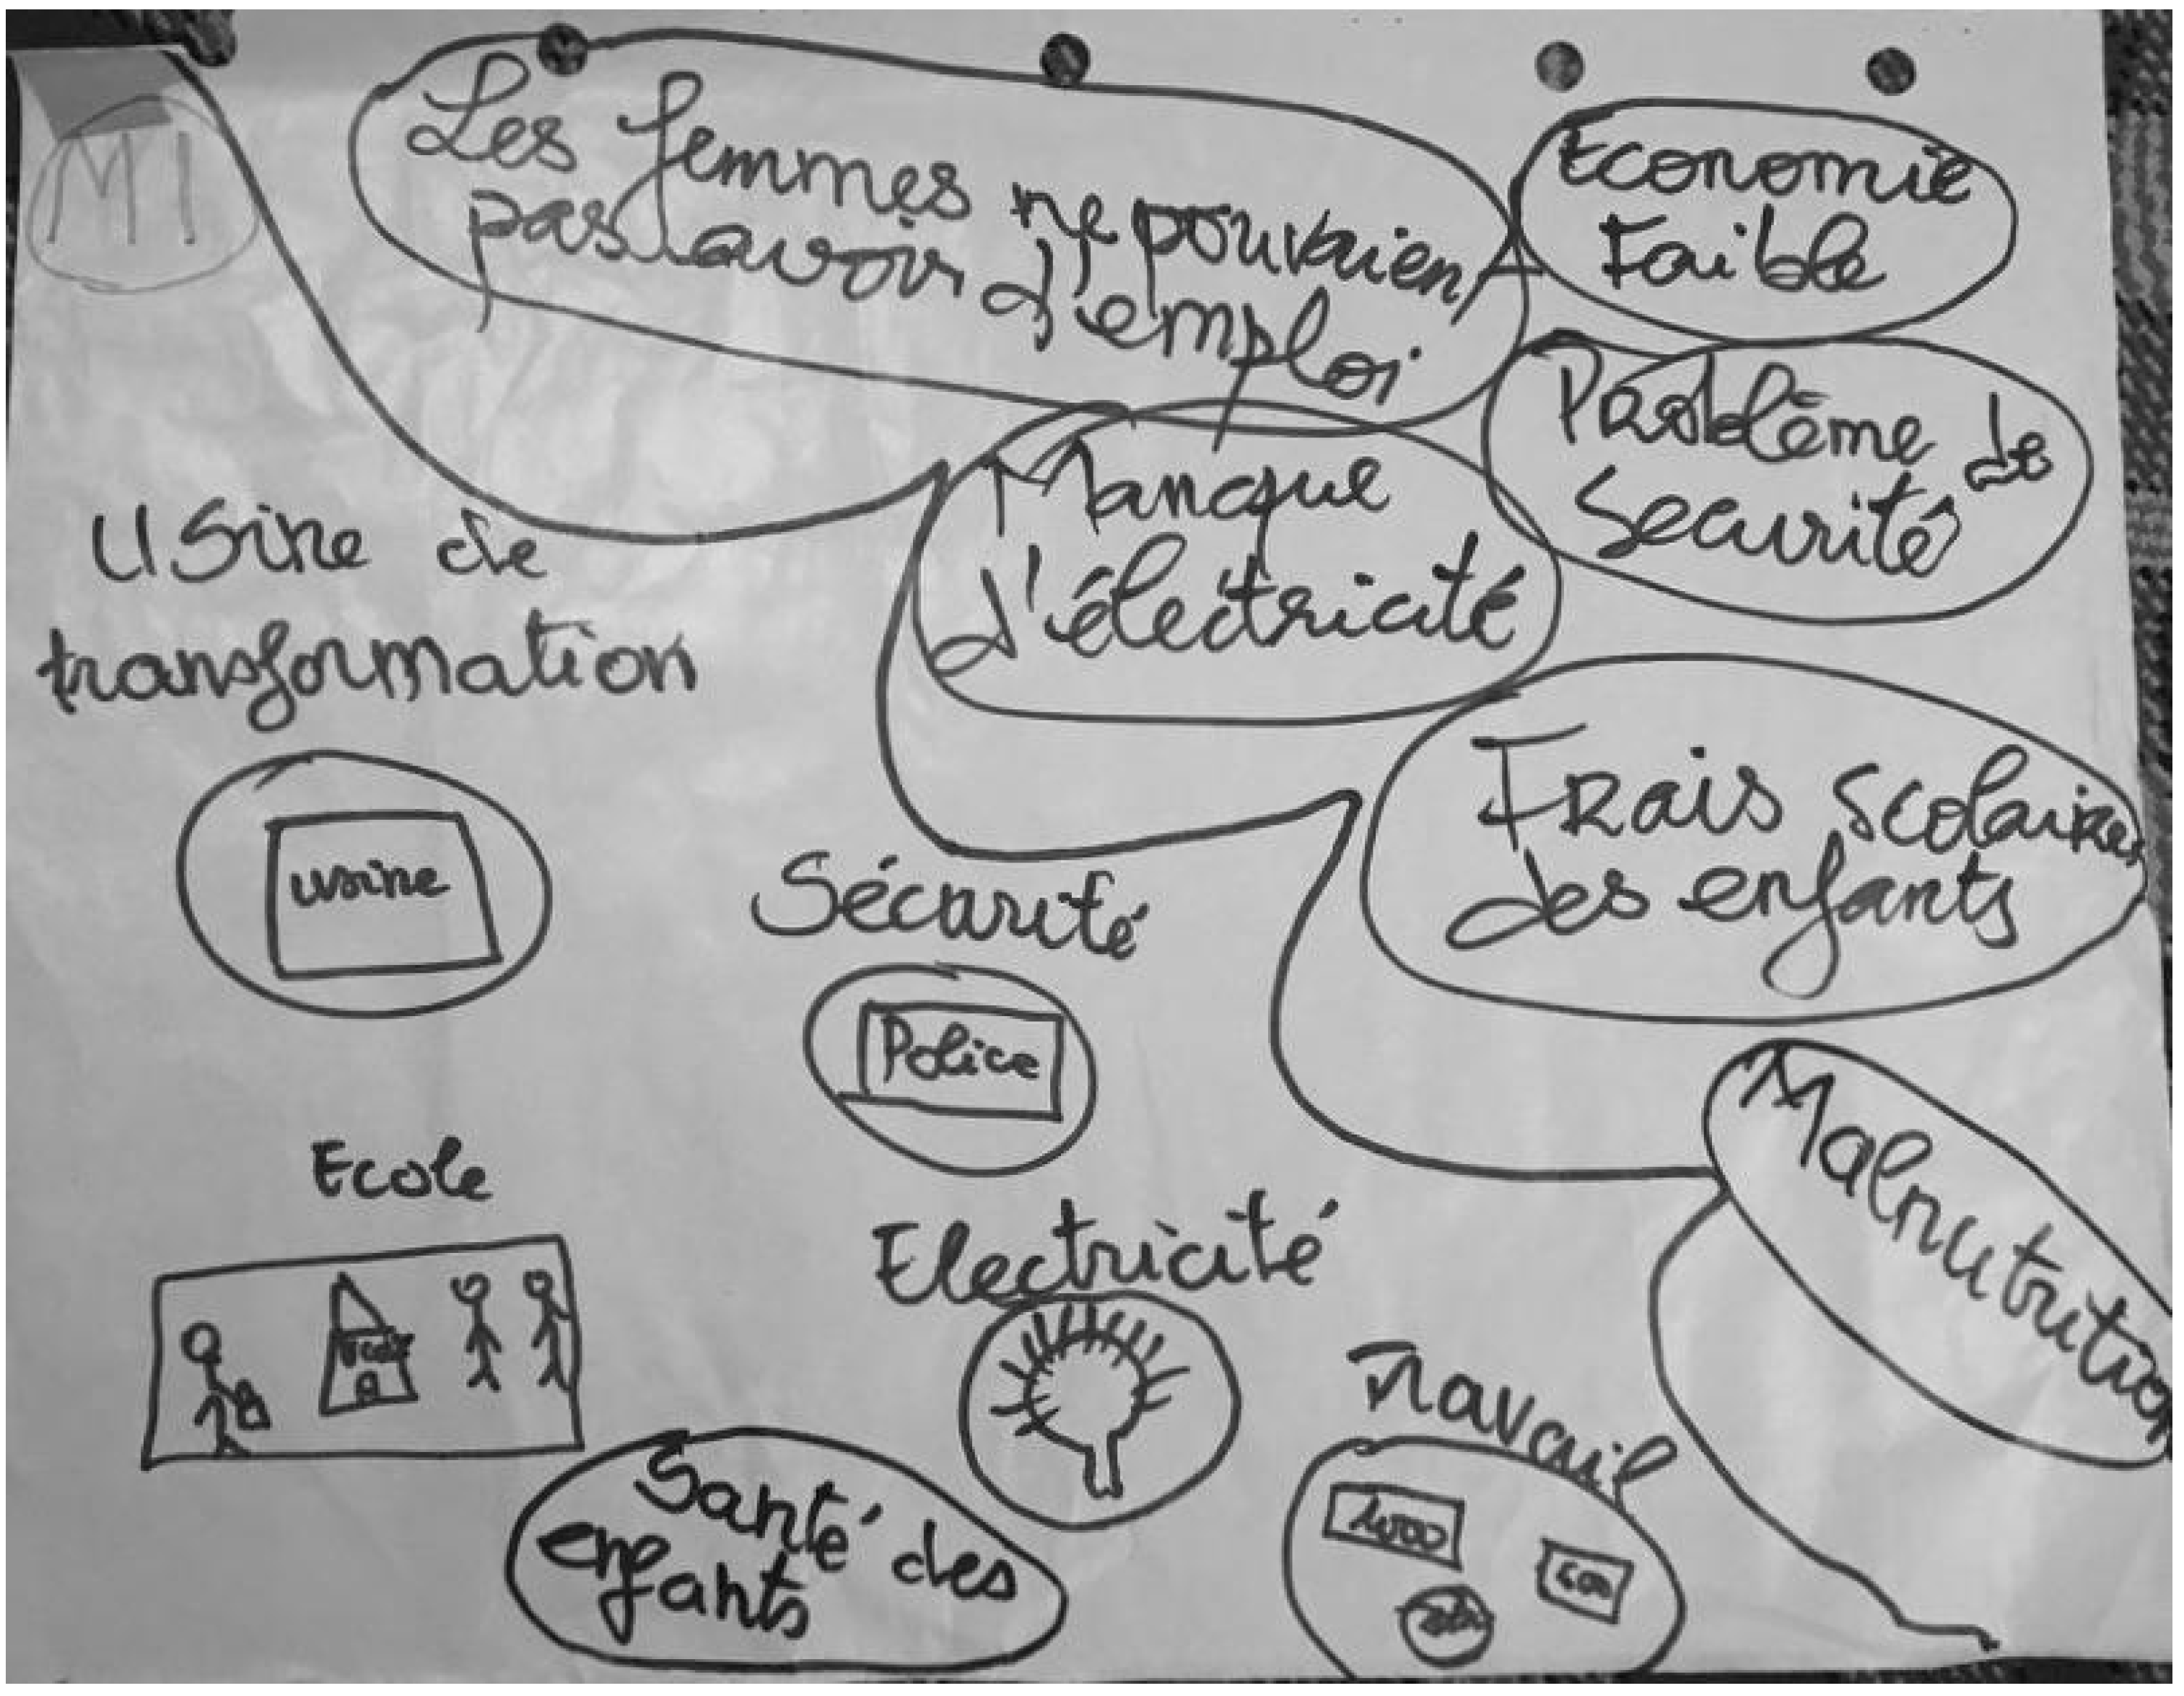 M1
Les femmes ne pouvaient
pas avoir d'emploi
Economie
Faible
Problème de
Securité
Manque
d'électricité
Frais scolaires
des enfants
Malnutrition
Usine de
transformation
usine
Sécurité
Police
Ecole
Electricité
Travail
Santé des
enfants
1000
500